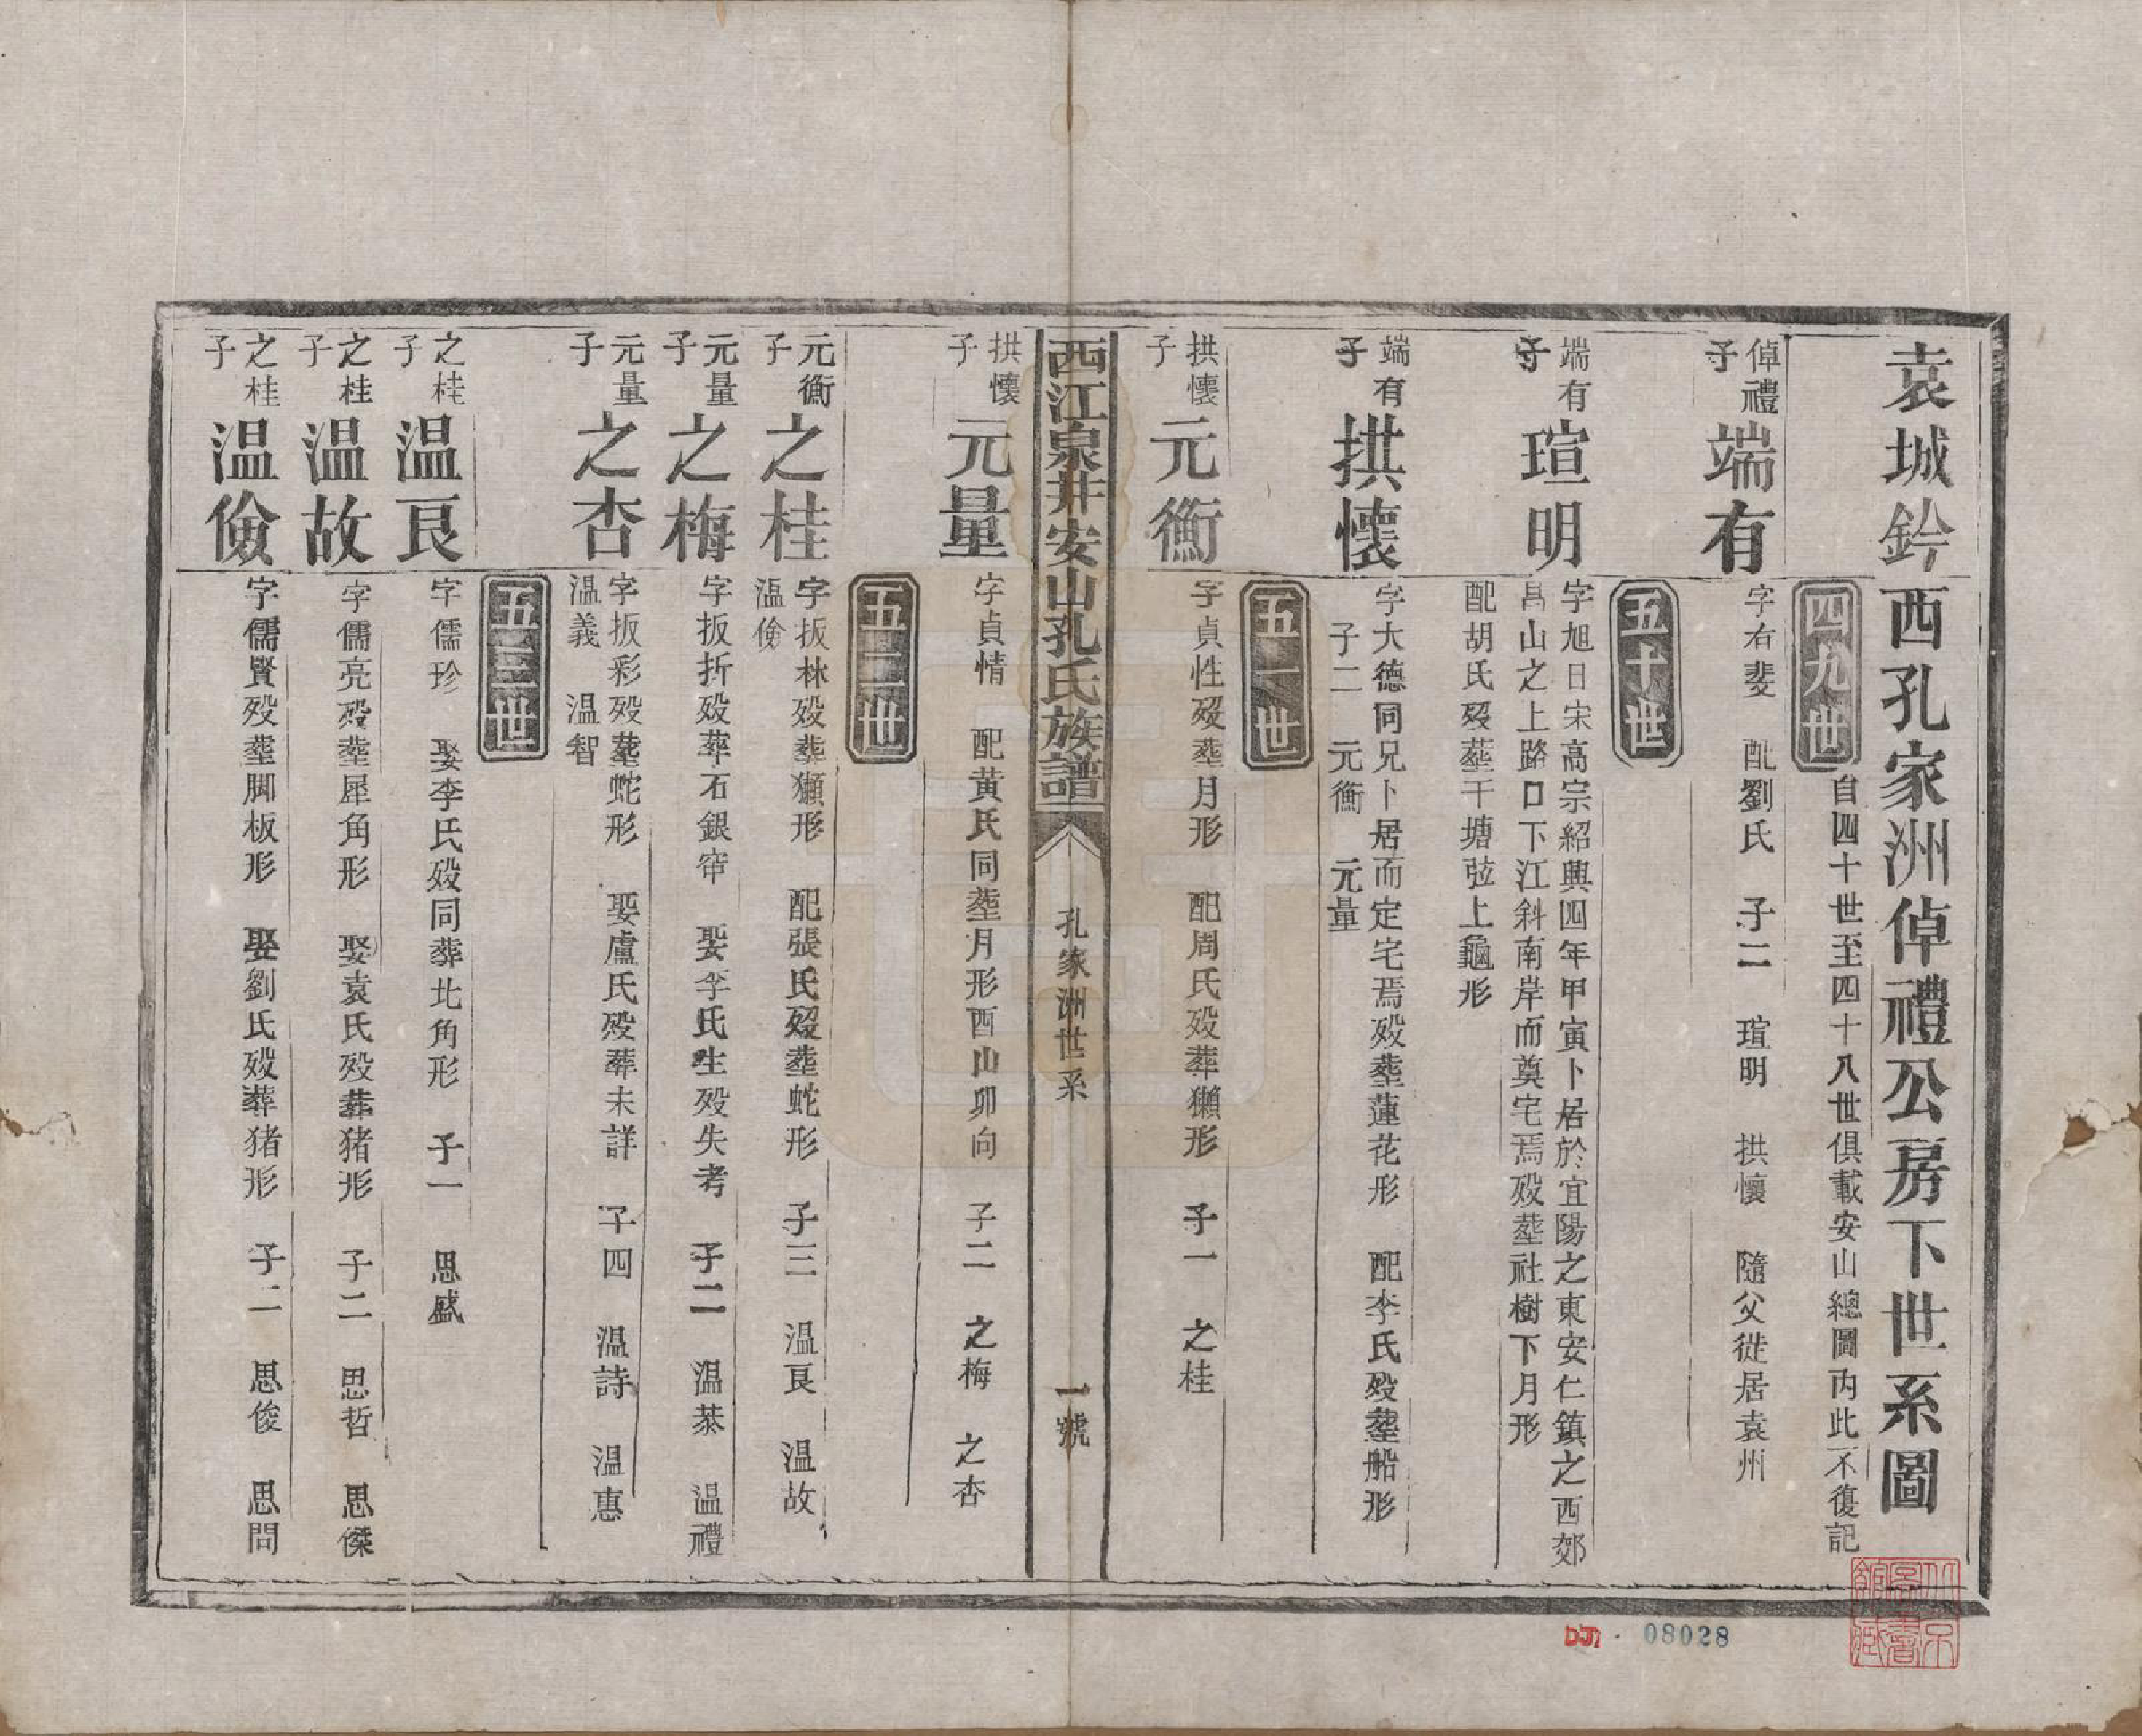 袁城鈐西孔家洲倬禮公房下世系圖
四九世
自四十世至四十八世俱載安山總圖內此不復記
倬禮子
端有
字有斐 配劉氏 子二 瑄明 拱懷 隨父徙居袁州
五十世
端有子
瑄明
字旭日宋高宗紹興四年甲寅卜居於宜陽之東安仁鎮之西郊
昌山之上路口下江斜南岸而奠宅焉歿塟社樹下月形
配胡氏歿塟干塘弦上龜形
端有子
拱懷
字大德同兄卜居而定宅焉歿塟蓮花形 配李氏歿塟船形
子二 元衡 元量
五一世
拱懷子
元衡
字貞性歿塟月形 配周氏歿葬獺形 子一 之桂
西江泉井安山孔氏族譜
孔家洲世系
一號
拱懷子
元量
字貞情 配黃氏同塟月形酉山卯向 子二 之梅 之杏
五二世
元衡子
之桂
字扳林歿葬獺形 配張氏歿塟蛇形 子三 温良 温故
温儉
元量子
之梅
字扳折歿葬石銀窂 娶李氏生歿失考 子二 温恭 温禮
元量子
之杏
字扳彩歿塟蛇形 娶盧氏歿葬未詳 子四 温詩 温惠
温義 温智
五三世
之桂子
温良
字儒珍 娶李氏歿同葬北角形 子一 思盛
之桂子
温故
字儒亮歿塟犀角形 娶袁氏歿葬猪形 子二 思哲 思傑
之桂子
温儉
字儒賢歿塟脚板形 娶劉氏歿葬猪形 子二 思俊 思問
北京圖書館藏
DJ 08028